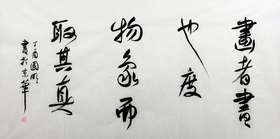 畫者畫
也度
物象而
取其真
丁酉國明
書於京華